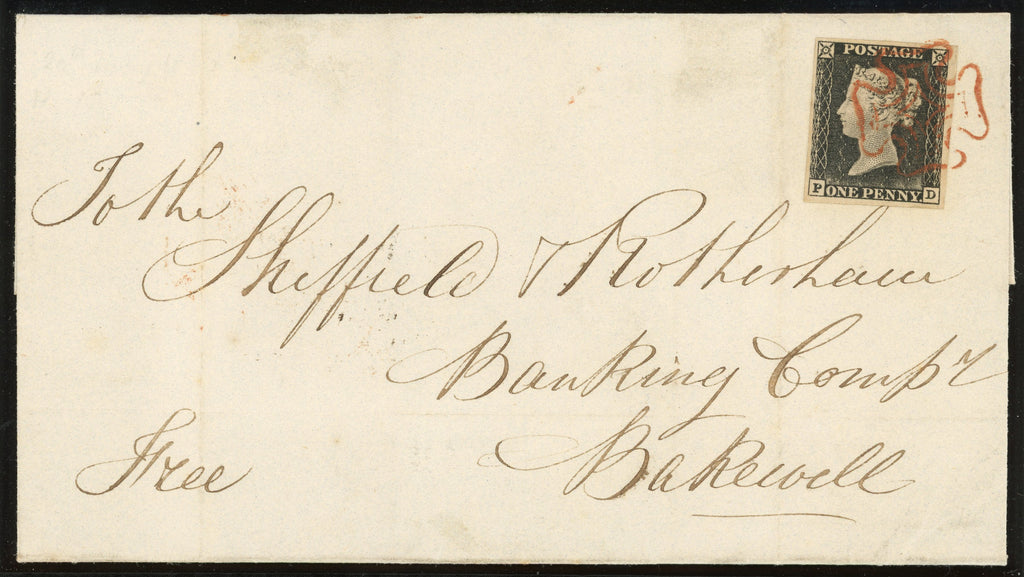 POSTAGE
P ONE PENNY D
To the
Sheffield & Rotherham
Banking Compy
Free Bakewell